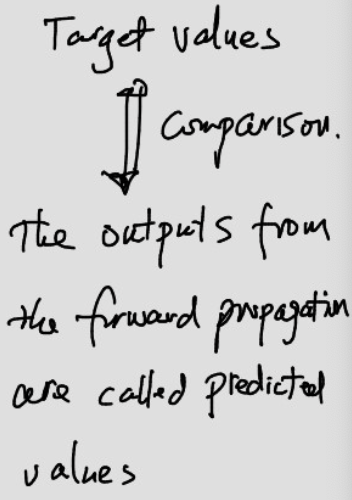 Target values
Comparison.
The outputs from
the forward propagation
are called predicted
values